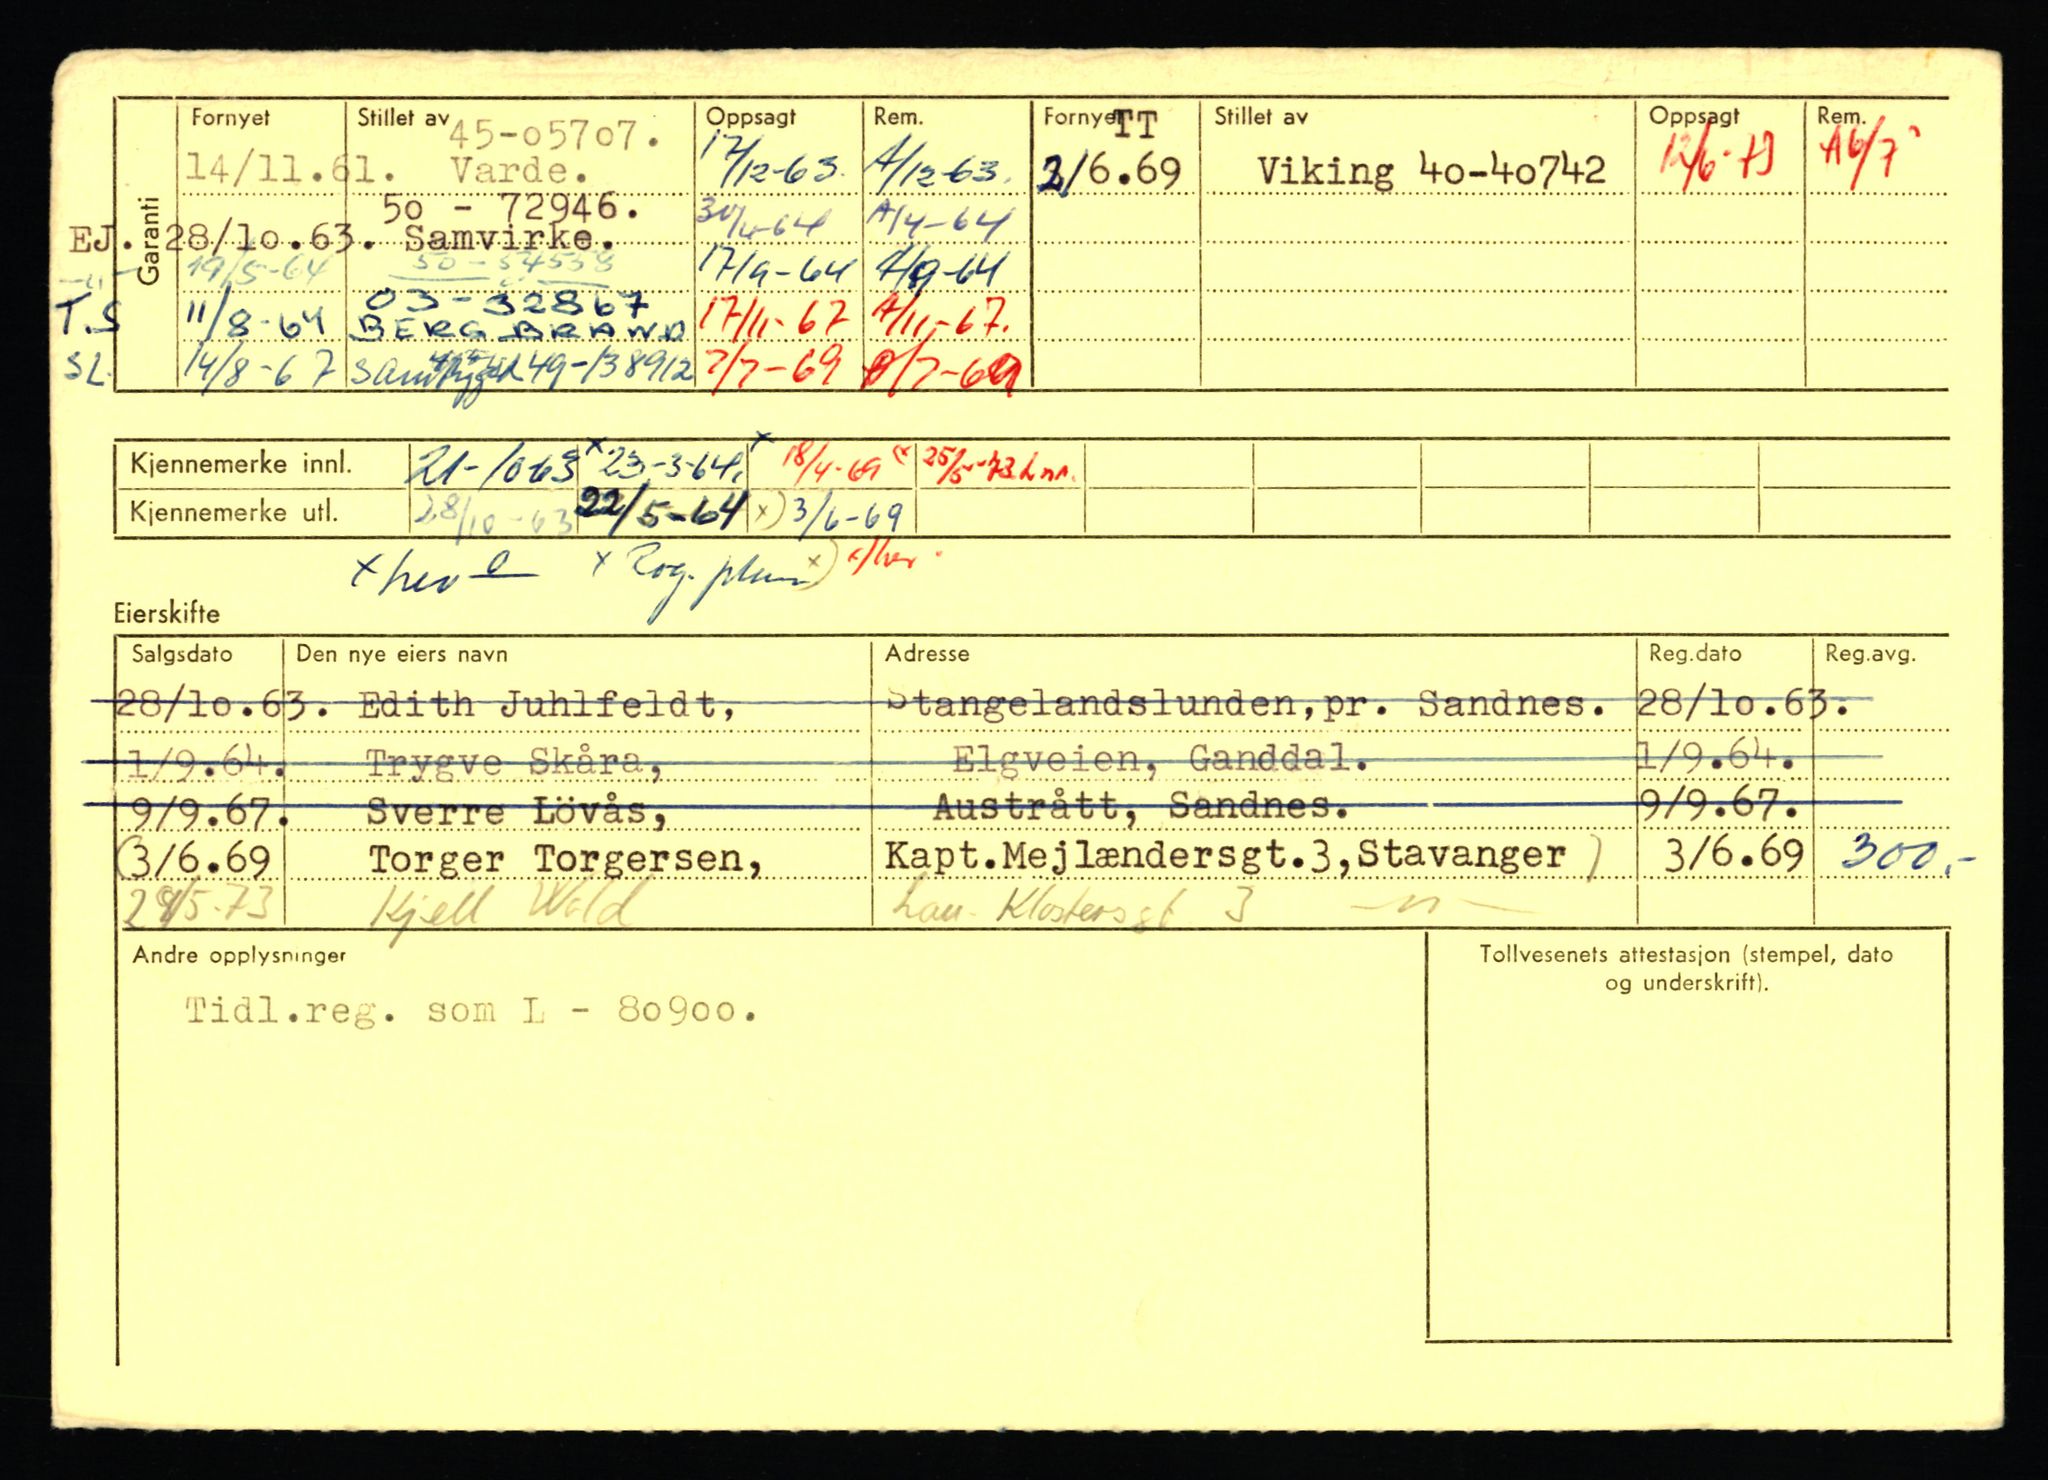 Garanti
Fornyet Stillet av Oppsagt Rem. Fornyet TT Stillet av Oppsagt Rem.
45-05707.
14/11.61. Varde. 17/12-63. A/12-63. 2/6.69 Viking 40-40742 12/6-73 A6/7
50 - 72946. 30/4-64 A/4-64
EJ. 28/10.63. Samvirke.
-"- 19/5-64 17/9-64 A/9-64
03-32867
T.S 11/8-64 BERG BRAND 17/11-67 A/11-67.
SL. 14/8-67 49-138912 7/7-69 A/7-69
Kjennemerke innl. 21-10-63 x 23-3-64, x 18/4-69 (x 25/5-73 h nr.
Kjennemerke utl. 28/10-63 22/5-64 x) 3/6-69
x x Rog. x)
Eierskifte
Salgsdato Den nye eiers navn Adresse Reg.dato Reg.avg.
28/10.63. Edith Juhlfeldt, Stangelandslunden,pr. Sandnes. 28/10.63.
1/9.64. Trygve Skåra, Elgveien, Ganddal. 1/9.64.
9/9.67. Sverre Lövås, Austrått, Sandnes. 9/9.67.
(3/6.69 Torger Torgersen, Kapt.Mejlændersgt.3,Stavanger ) 3/6.69 300,-
Kjell Wold Lau. Klostersgt 3 -"-
Andre opplysninger
Tidl.reg. som L - 80900.
Tollvesenets attestasjon (stempel, dato
og underskrift).